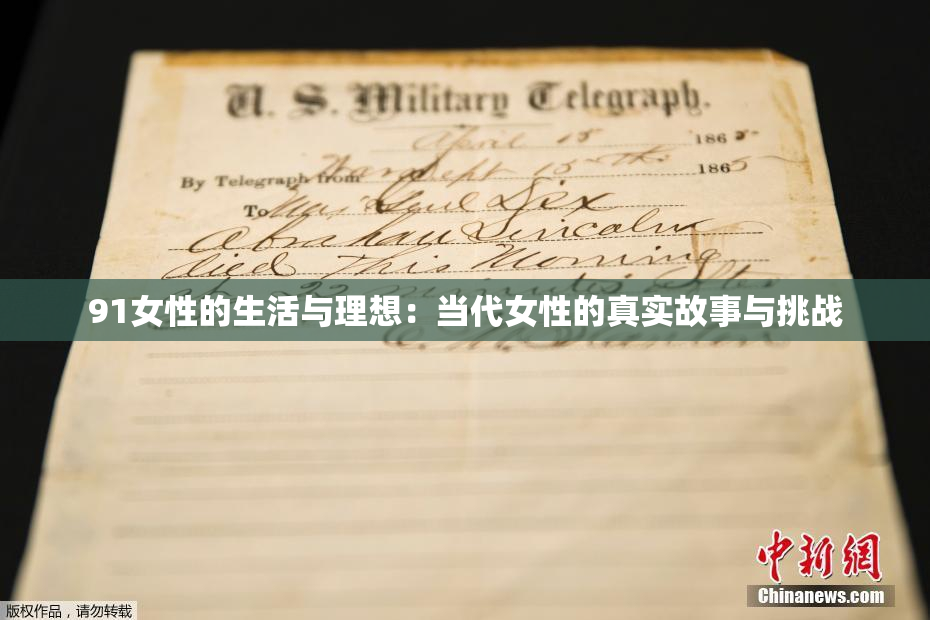 U. S. Military Telegraph.
April 15 1865
By Telegraph from War Dept 15th 1865
To Maj Genl Dix
Abraham Lincoln
died This Morning
22 minutes after
91女性的生活与理想：当代女性的真实故事与挑战
E. M. Stanton
中新網
Chinanews.com
版权作品，请勿转载